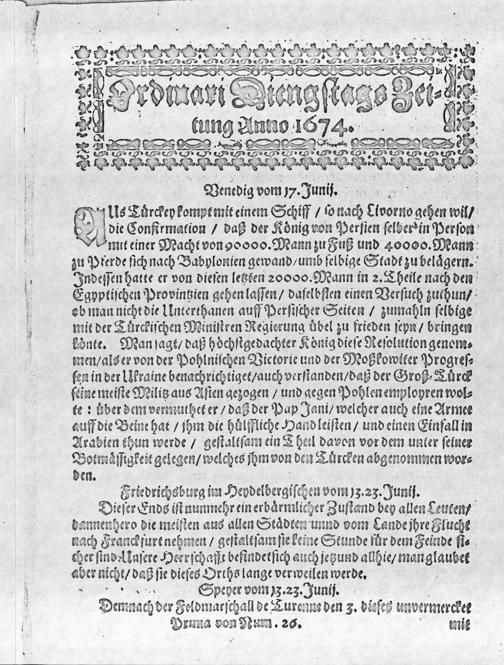 Ordinari Diengstags Zei-
tung Anno 1674.
Venedig vom 17. Junij.
AUs Türckey kompt mit einem Schiff / so nach Livorno gehen wil /
die Confirmation / daß der König von Persien selber in Person
mit einer Macht von 90000. Mann zu Fuß und 40000. Mann
zu Pferde sich nach Babylonien gewand / umb selbige Stadt zu belägern.
Indessen hatte er von diesen letzten 20000. Mann in 2. Theile nach den
Egyptischen Provintzien gehen lassen / daselbsten einen Versuch zuthun /
ob man nicht die Unterthanen auff Persischer Seiten / zumahln selbige
mit der Türckischen Ministren Regierung übel zu frieden seyn / bringen
könte. Man sagt / daß höchstgedachter König diese Resolution genom-
men / als er von der Pohlnischen Victorie und der Moßkowiter Progres-
sen in der Ukraine benachrichtiget / auch verstanden / daß der Groß-Türck
seine meiste Militz aus Asien gezogen / und gegen Pohlen employren wol-
te : über dem vermuthet er / daß der Pap Jani / welcher auch eine Armee
auff die Beine hat / ihm die hülffliche Hand leisten / und einen Einfall in
Arabien thun werde / gestaltsam ein Theil davon vor dem unter seiner
Botmässigkeit gelegen / welches ihm von den Türcken abgenommen wor-
den.
Friedrichsburg im Heydelbergischen vom 13.23. Junij.
Dieser Ends ist nunmehr ein erbärmlicher Zustand bey allen Leuten /
dannenhero die meisten aus allen Städten unnd vom Lande jhre Flucht
nach Franckfurt nehmen / gestaltsam sie keine Stunde für dem Feinde si-
cher sind. Unsere Herrschafft befindet sich auch jetzund allhie / man glaubet
aber nicht / daß sie dieses Orths lange verweilen werde.
Speyer vom 13.23. Junij.
Demnach der Feldmarschall de Turenne den 3. dieses unvermercket
Pruna von Num. 26. mit